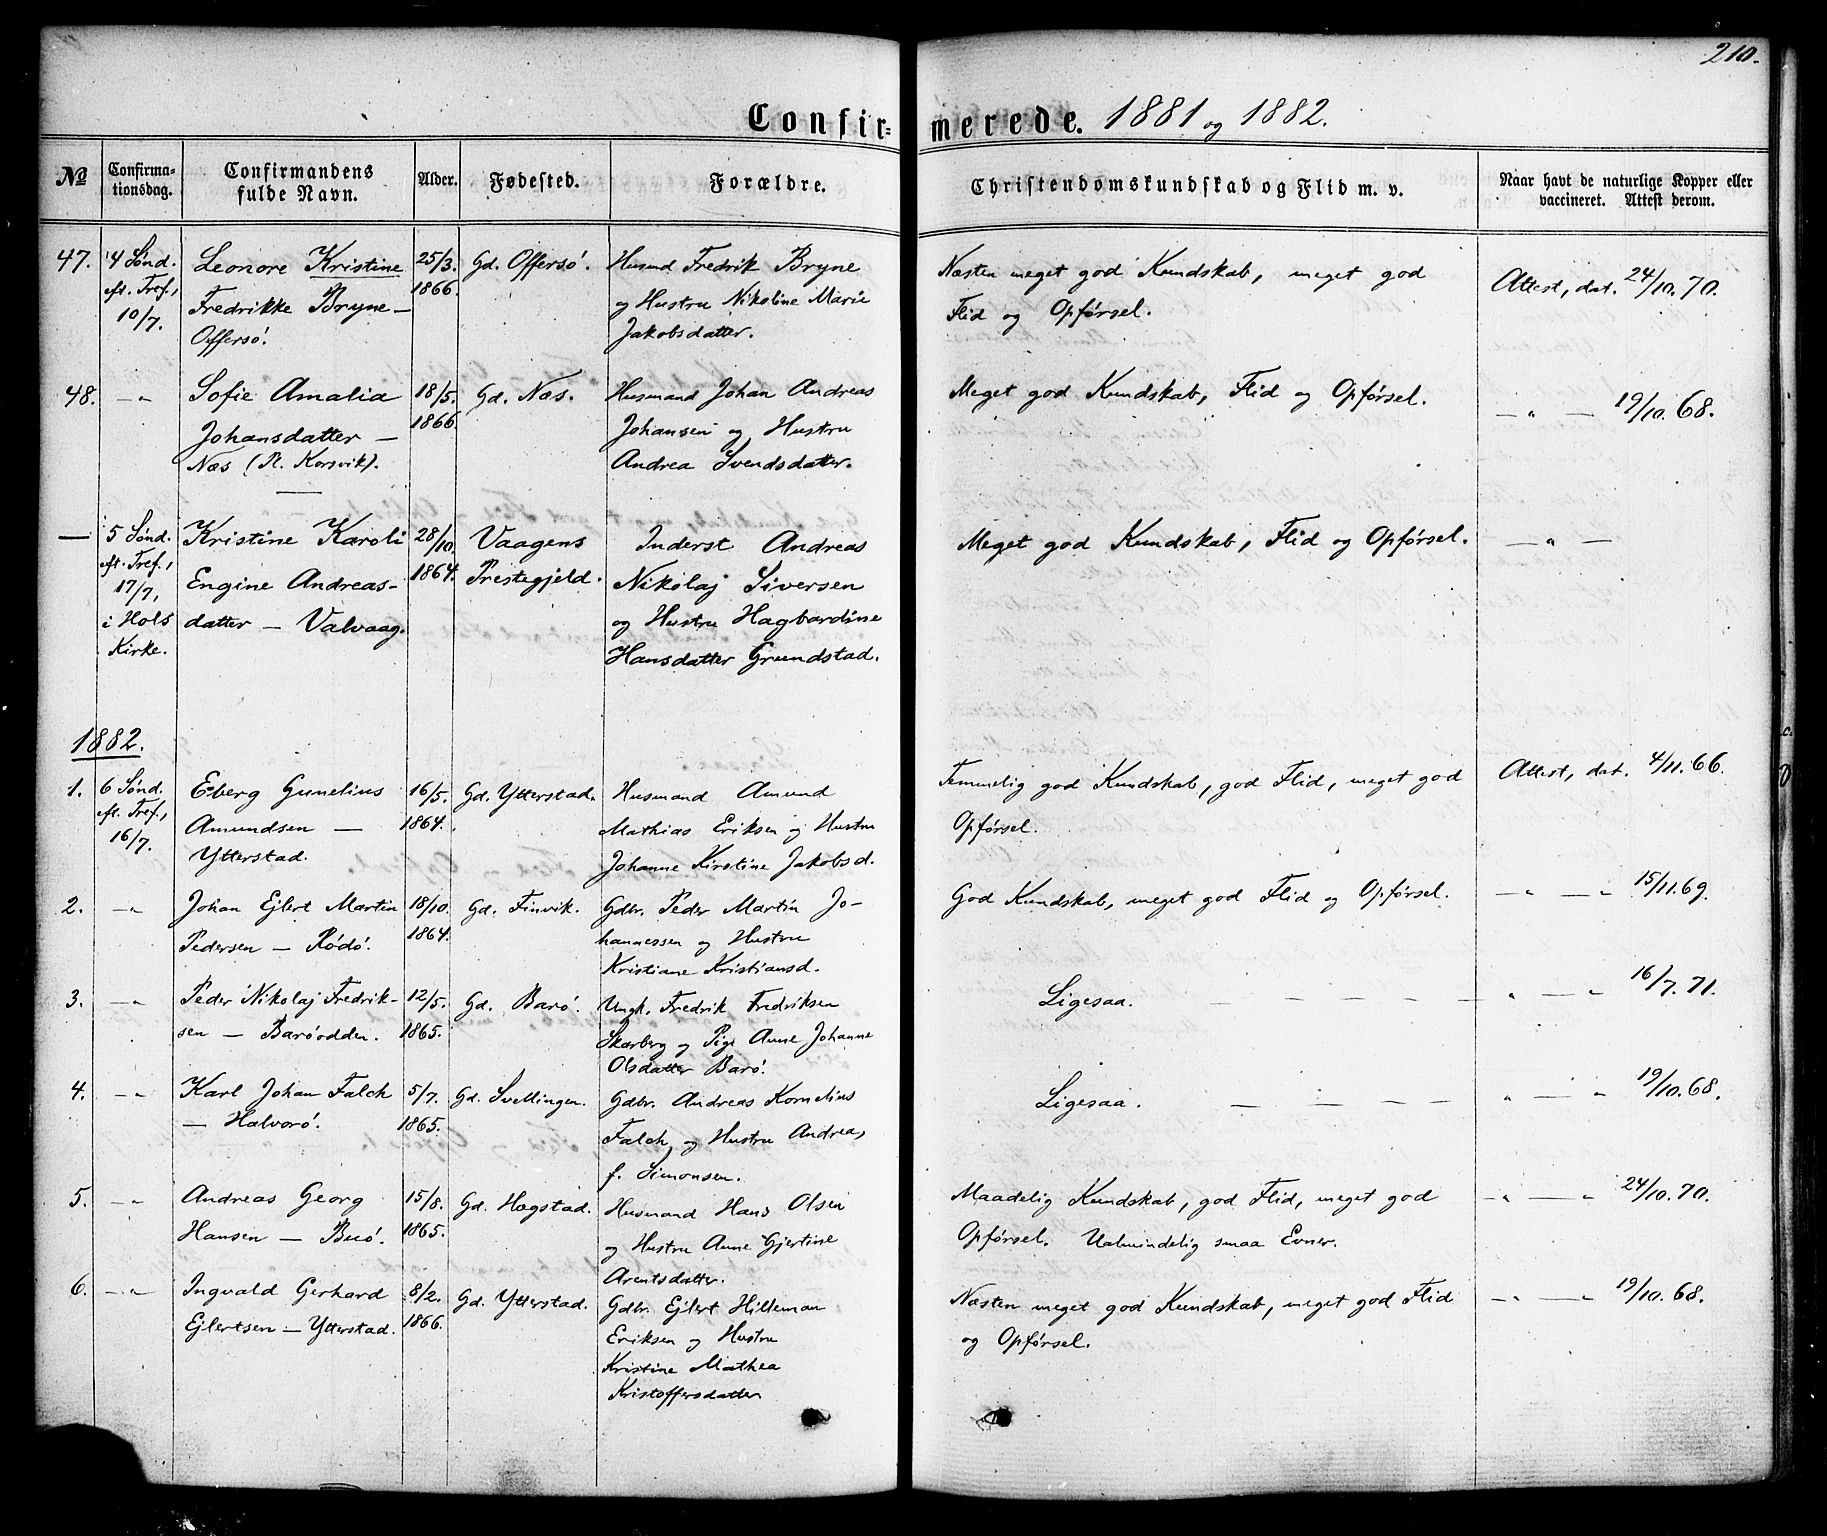 210.
Confir=merede. 1881 og 1882.
№ Confirma-tionsdag. Confirmandens fulde Navn. Alder. Fødested. Forældre. Christendomskundskab og Flid m. v. Naar havt de naturlige Kopper eller vaccineret. Attest derom.
47. 4 Sønd. Leonore Kristine 25/3. Gd. Offersö. Husmd Fredrik Bryne Næsten meget god Kundskab, meget god Attest, dat. 24/10.70.
eft. Tref., Fredrikke Bryne— 1866. og Hustru Nikoline Marie Flid og Opförsel.
10/7. Offersö. Jakobsdatter.
48. —„ Sofie Amalia 18/5. Gd. Næs. Husmand Johan Andreas Meget god Kundskab, Flid og Opförsel. —„— 19/10.68.
Johansdatter — 1866. Johansen og Hustru
Næs (Pl. Korsvik). Andrea Svendsdatter.
— 5 Sønd. Kristine Karoli 28/10. Vaagens Inderst Andreas Meget god Kundskab, Flid og Opförsel. —„—
eft. Tref., Engine Andreas- 1864. Prestegjeld. Nikolaj Siversen
17/7, datter — Valvaag. og Hustru Hagbardine
i Hols Hansdatter Grundstad.
Kirke.
1882.
1. 6 Sønd. Eberg Gunelius 16/5. Gd. Ytterstad. Husmand Amund Temmelig god Kundskab, god Flid, meget god Attest, dat. 4/11.66.
eft. Tref., Amundsen — 1864. Mathias Eriksen og Hustru Opförsel.
16/7. Ytterstad. Johanne Kirstine Jakobsd.
2. —„ Johan Ejlert Martin 18/10. Gd. Finvik. Gdbr. Peder Martin Jo- God Kundskab, meget god Flid og Opförsel. —„ —„ 15/11.69.
Pedersen — Rödö. 1864. hannessen og Hustru
Kristiane Kristiansd.
3. —„ Peder Nikolaj Fredrik- 12/5. Gd. Barö. Ungk. Fredrik Fredriksen Ligesaa. — — — — — „ —„ 16/7.71.
sen — Baröodden. 1865. Skarberg og Pige Anne Johanne
Olsdatter Barö.
4. —„ Karl Johan Falch 5/7. Gd. Svellingen. Gdbr. Andreas Kornelius Ligesaa. — — — — „ —„ 19/10.68.
— Halvorö. 1865. Falch og Hustru Andrea,
f. Simonsen.
5. —„ Andreas Georg 15/8. Gd. Hogstad. Husmand Hans Olsen Maadelig Kundskab, god Flid, meget god —„ —„ 24/10.70.
Hansen — Buö. 1865. og Hustru Anne Gjertine Opförsel. Ualmindelig smaa Evner.
Arentsdatter.
6. —„ Ingvald Gerhard 8/2. Gd. Ytterstad. Gdbr. Ejlert Hilleman Næsten meget god Kundskab, meget god Flid —„ —„ 19/10.68.
Ejlertsen — Ytterstad. 1866. Eriksen og Hustru og Opförsel.
Kristine Mathea
Kristoffersdatter